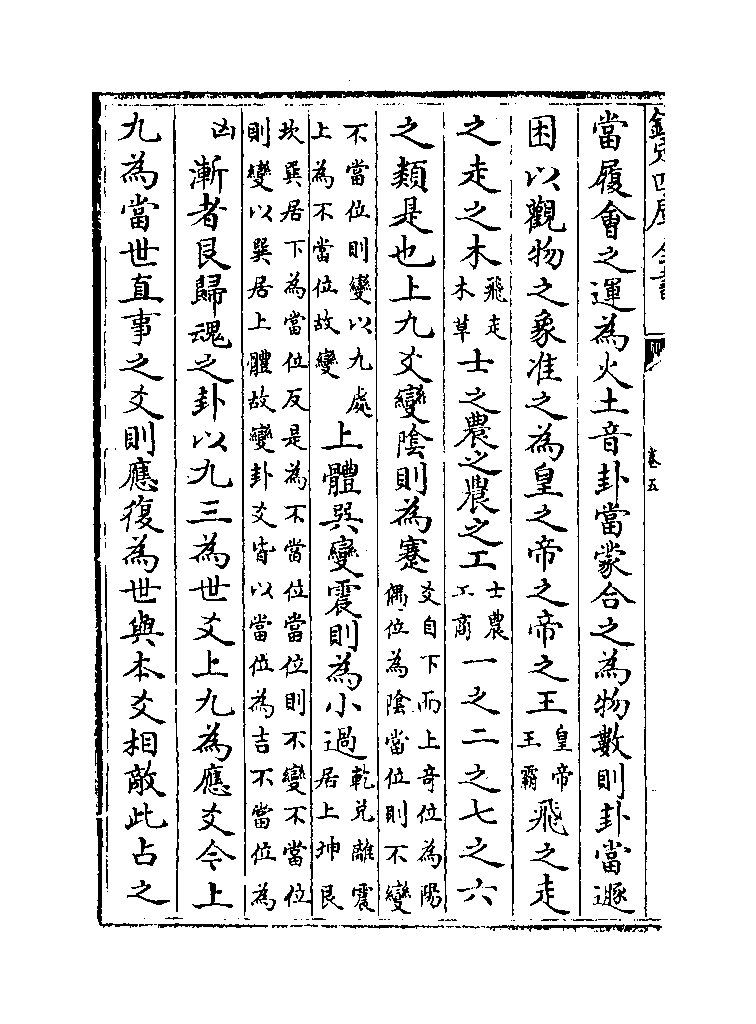 欽定四庫全書
卷五
當履會之運為火土音卦當蒙合之為物數則卦當遯
困以觀物之象准之為皇之帝之帝之王皇帝王霸飛之走
之走之木飛走木草士之農之農之工士農工商一之二之七之六
之類是也上九爻變陰則為蹇爻自下而上竒位為陽偶位為陰當位則不變
不當位則變以九處上為不當位故變上體巽變震則為小過乾兌離震居上坤艮
坎巽居下為當位反是為不當位當位則不變不當位則變以巽居上體故變卦爻皆以當位為吉不當位為
凶漸者艮歸魂之卦以九三為世爻上九為應爻今上
九為當世直事之爻則應復為世與本爻相敵此占之